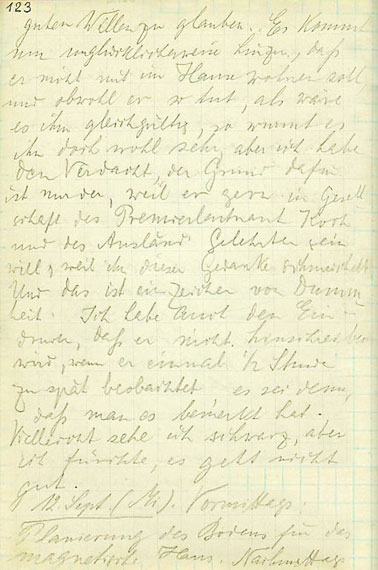 123
guten Willen zu glauben. Es kommt
nun unglücklicherweise hinzu, daß
er nicht mit im Hause wohnen soll
und obwohl er so tut, als wäre
es ihm gleichgültig, so wurmt es
ihn doch wohl sehr, aber ich habe
den Verdacht, der Grund dafür
ist nur der, weil er gern in Gesell
schaft des Premierleutnant Koch
und des Ausländ. Gelehrten sein
will, weil ihm dieser Gedanke schmeichelt.
Und das ist ein Zeichen von Dumm
heit. Ich habe den Ein-
druck, daß er nicht
wird, wenn er einmal 1/2 Stunde
zu spät beobachtet es sei denn,
daß man es bemerkt hat.
Vielleicht sehe ich schwarz, aber
ich fürchte, es geht nicht
gut.
12. Sept. (Mi). Vormittags:
Planierung des Bodens für das
magnetische Haus. Nachmittags